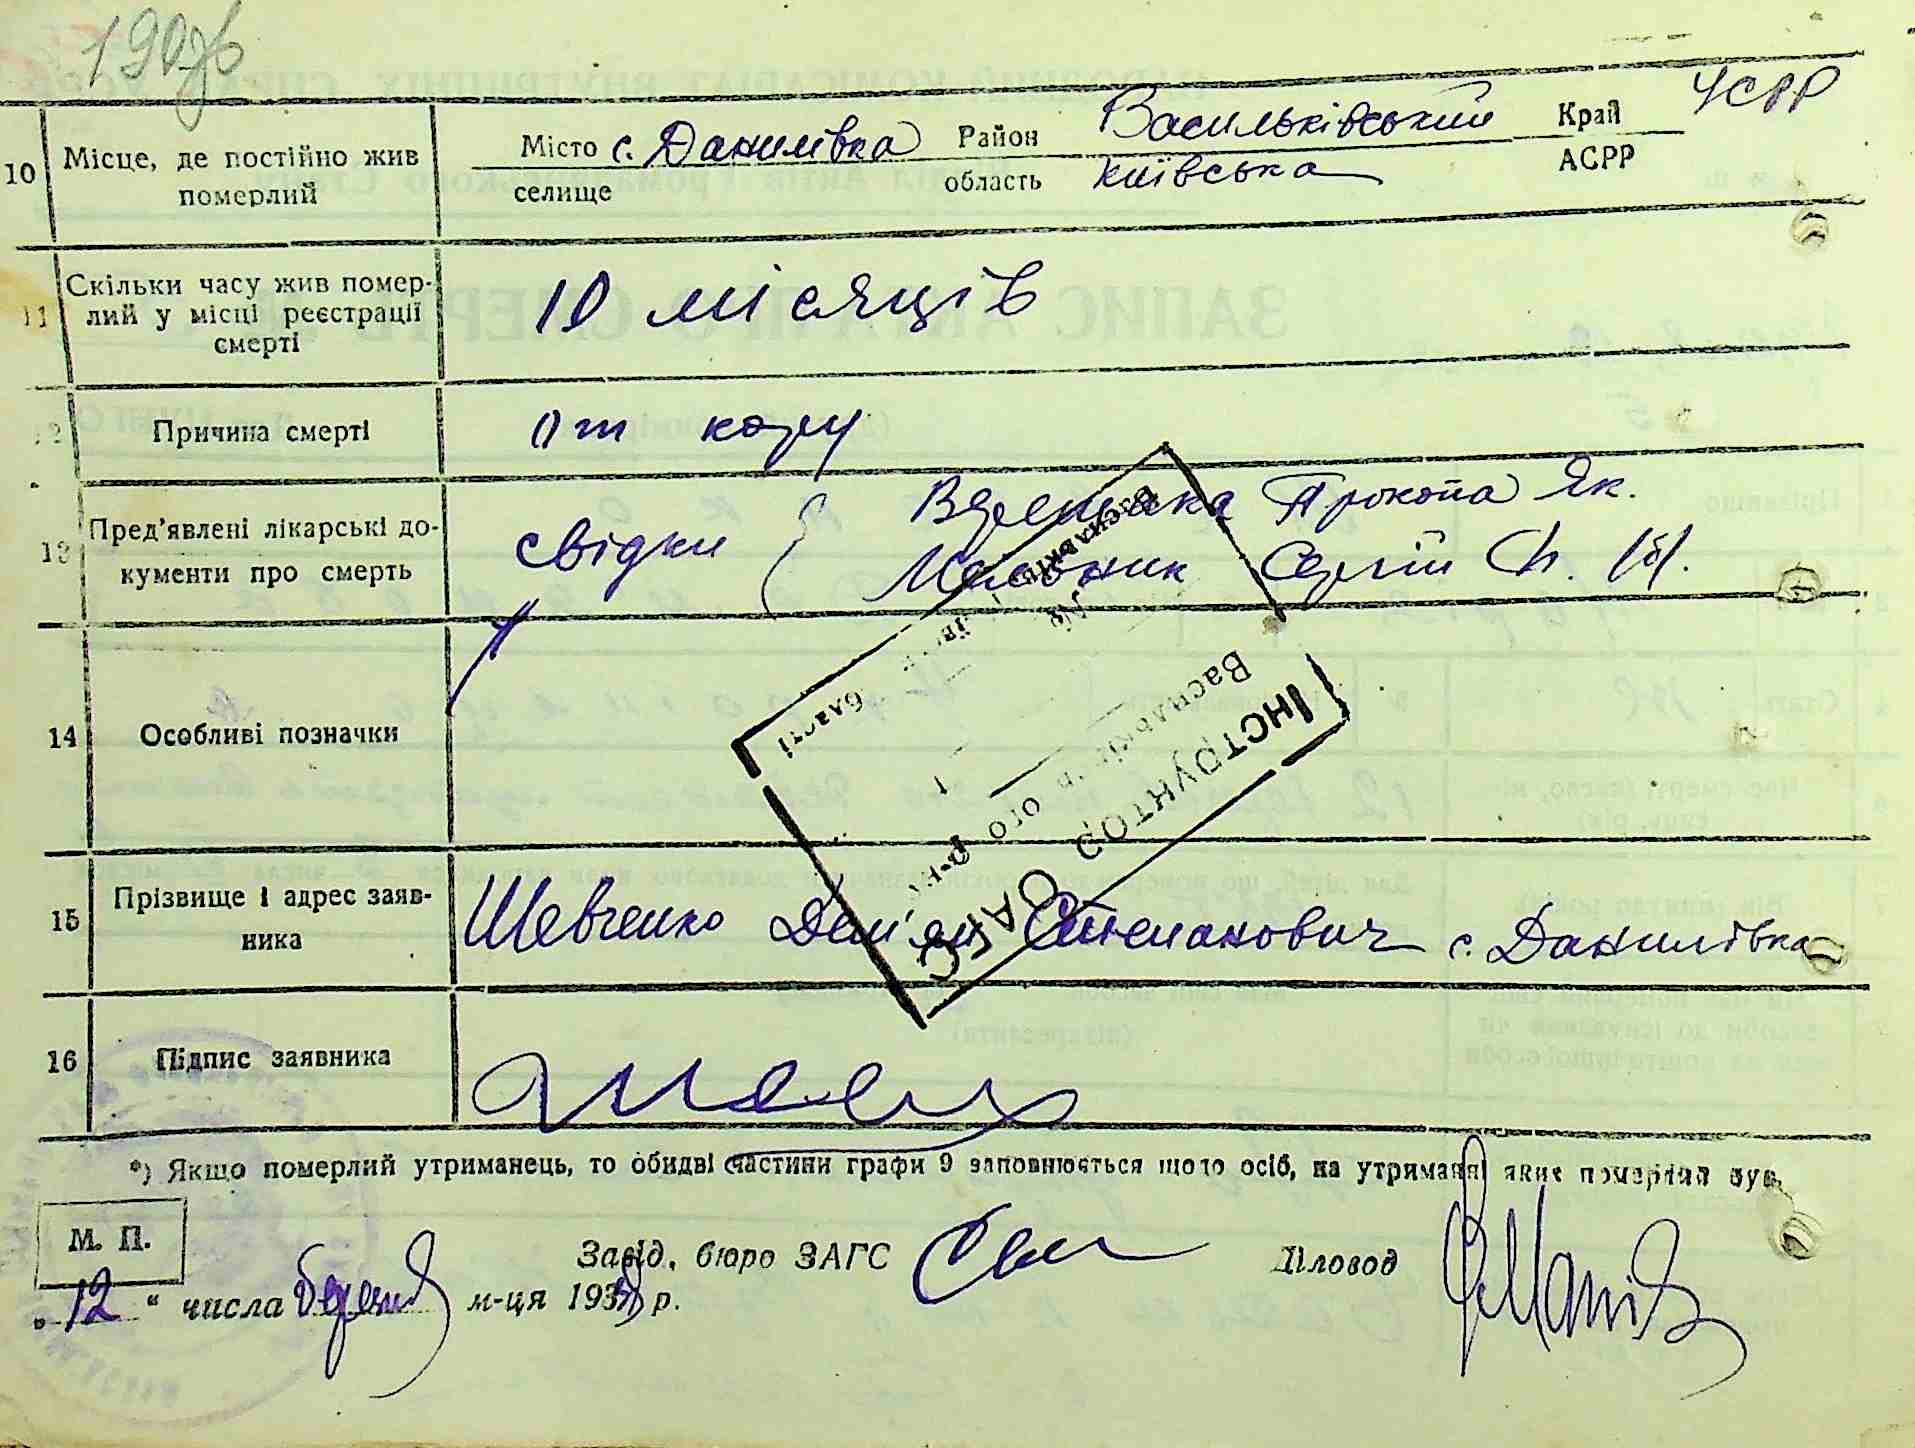 10 Місце, де постійно жив
померлий
Місто с. Данилівка Район Васильківський Край УСРР
селище область київська АСРР
11 Скільки часу жив помер-
лий у місці реєстрації
смерті
10 місяців
12 Причина смерті от кору
13 Пред'явлені лікарські до-
кументи про смерть
свідки Прокопа Як.
Мельник Сергій
14 Особливі позначки
ІНСТРУНТОР ЗАГС
15 Прізвище і адрес заяв-
ника
Шевченко Дем'ян Степанович с. Данилівка
16 Підпис заявника
*) Якщо померлий утриманець, то обидві частини графи 9 заповнюється щодо осіб, на утриманні яких померлий був.
М. П.
Завід. бюро ЗАГС Діловод
„12“ числа березня м-ця 193 р.